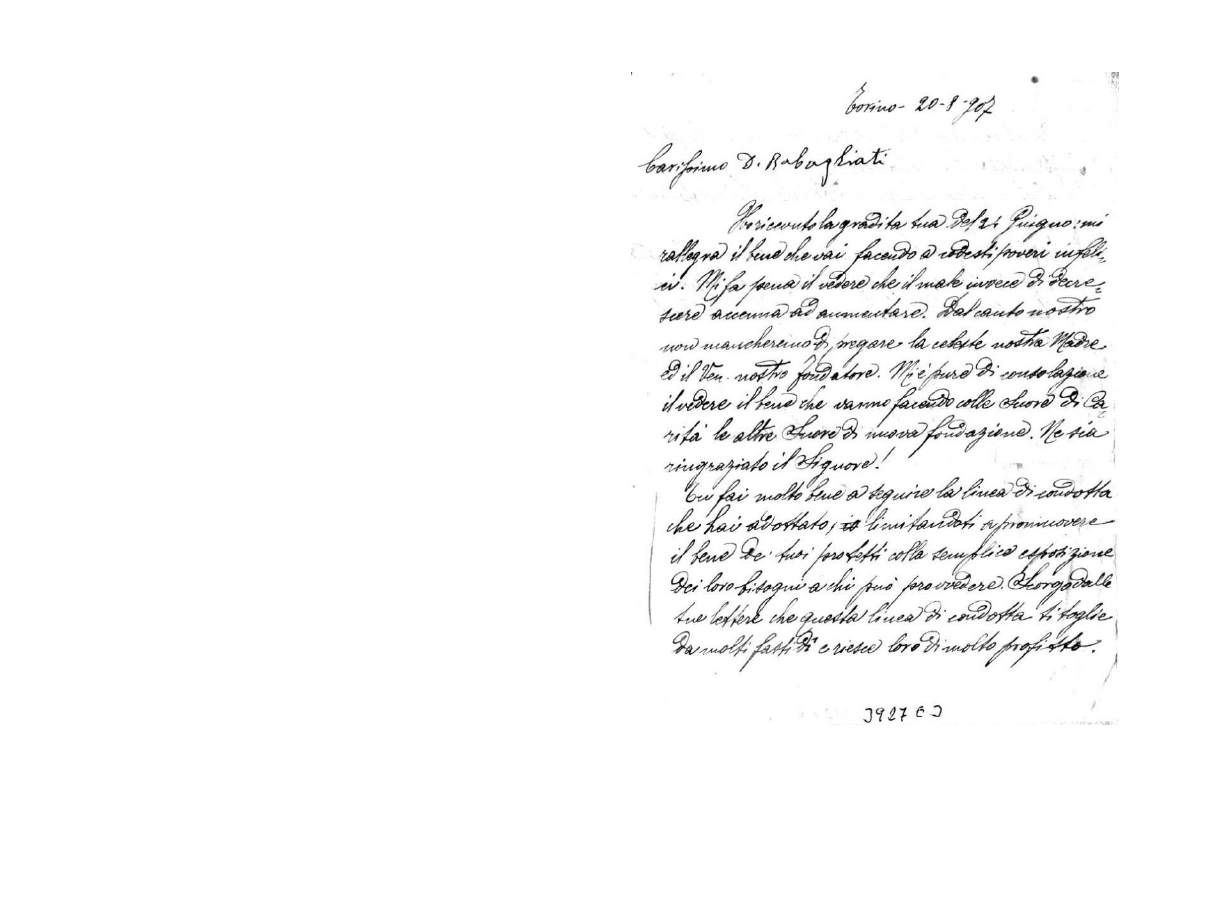 Torino - 20-8-907
Carissimo D. Rabagliati
Ho ricevuto la gradita tua del 21 Giugno: mi
rallegra il bene che vai facendo a codesti poveri infeli-
ci. Mi fa pena il vedere che il male invece di decre-
scere accenna ad aumentare. Dal canto nostro
non mancheremo di pregare la celeste nostra Madre
ed il Ven. nostro fondatore. Mi è pure di consolazione
il vedere il bene che vanno facendo colle Suore di Ca-
rità le altre Suore di nuova fondazione. Ne sia
ringraziato il Signore!
Tu fai molto bene a seguire la linea di condotta
che hai adottato, limitandoti a promuovere
il bene de' tuoi protetti colla semplice esposizione
dei loro bisogni a chi può provvedere. Scorgo dalle
tue lettere che questa linea di condotta ti toglie
da molti fastidi e riesce loro di molto profitto.
3927 C 3